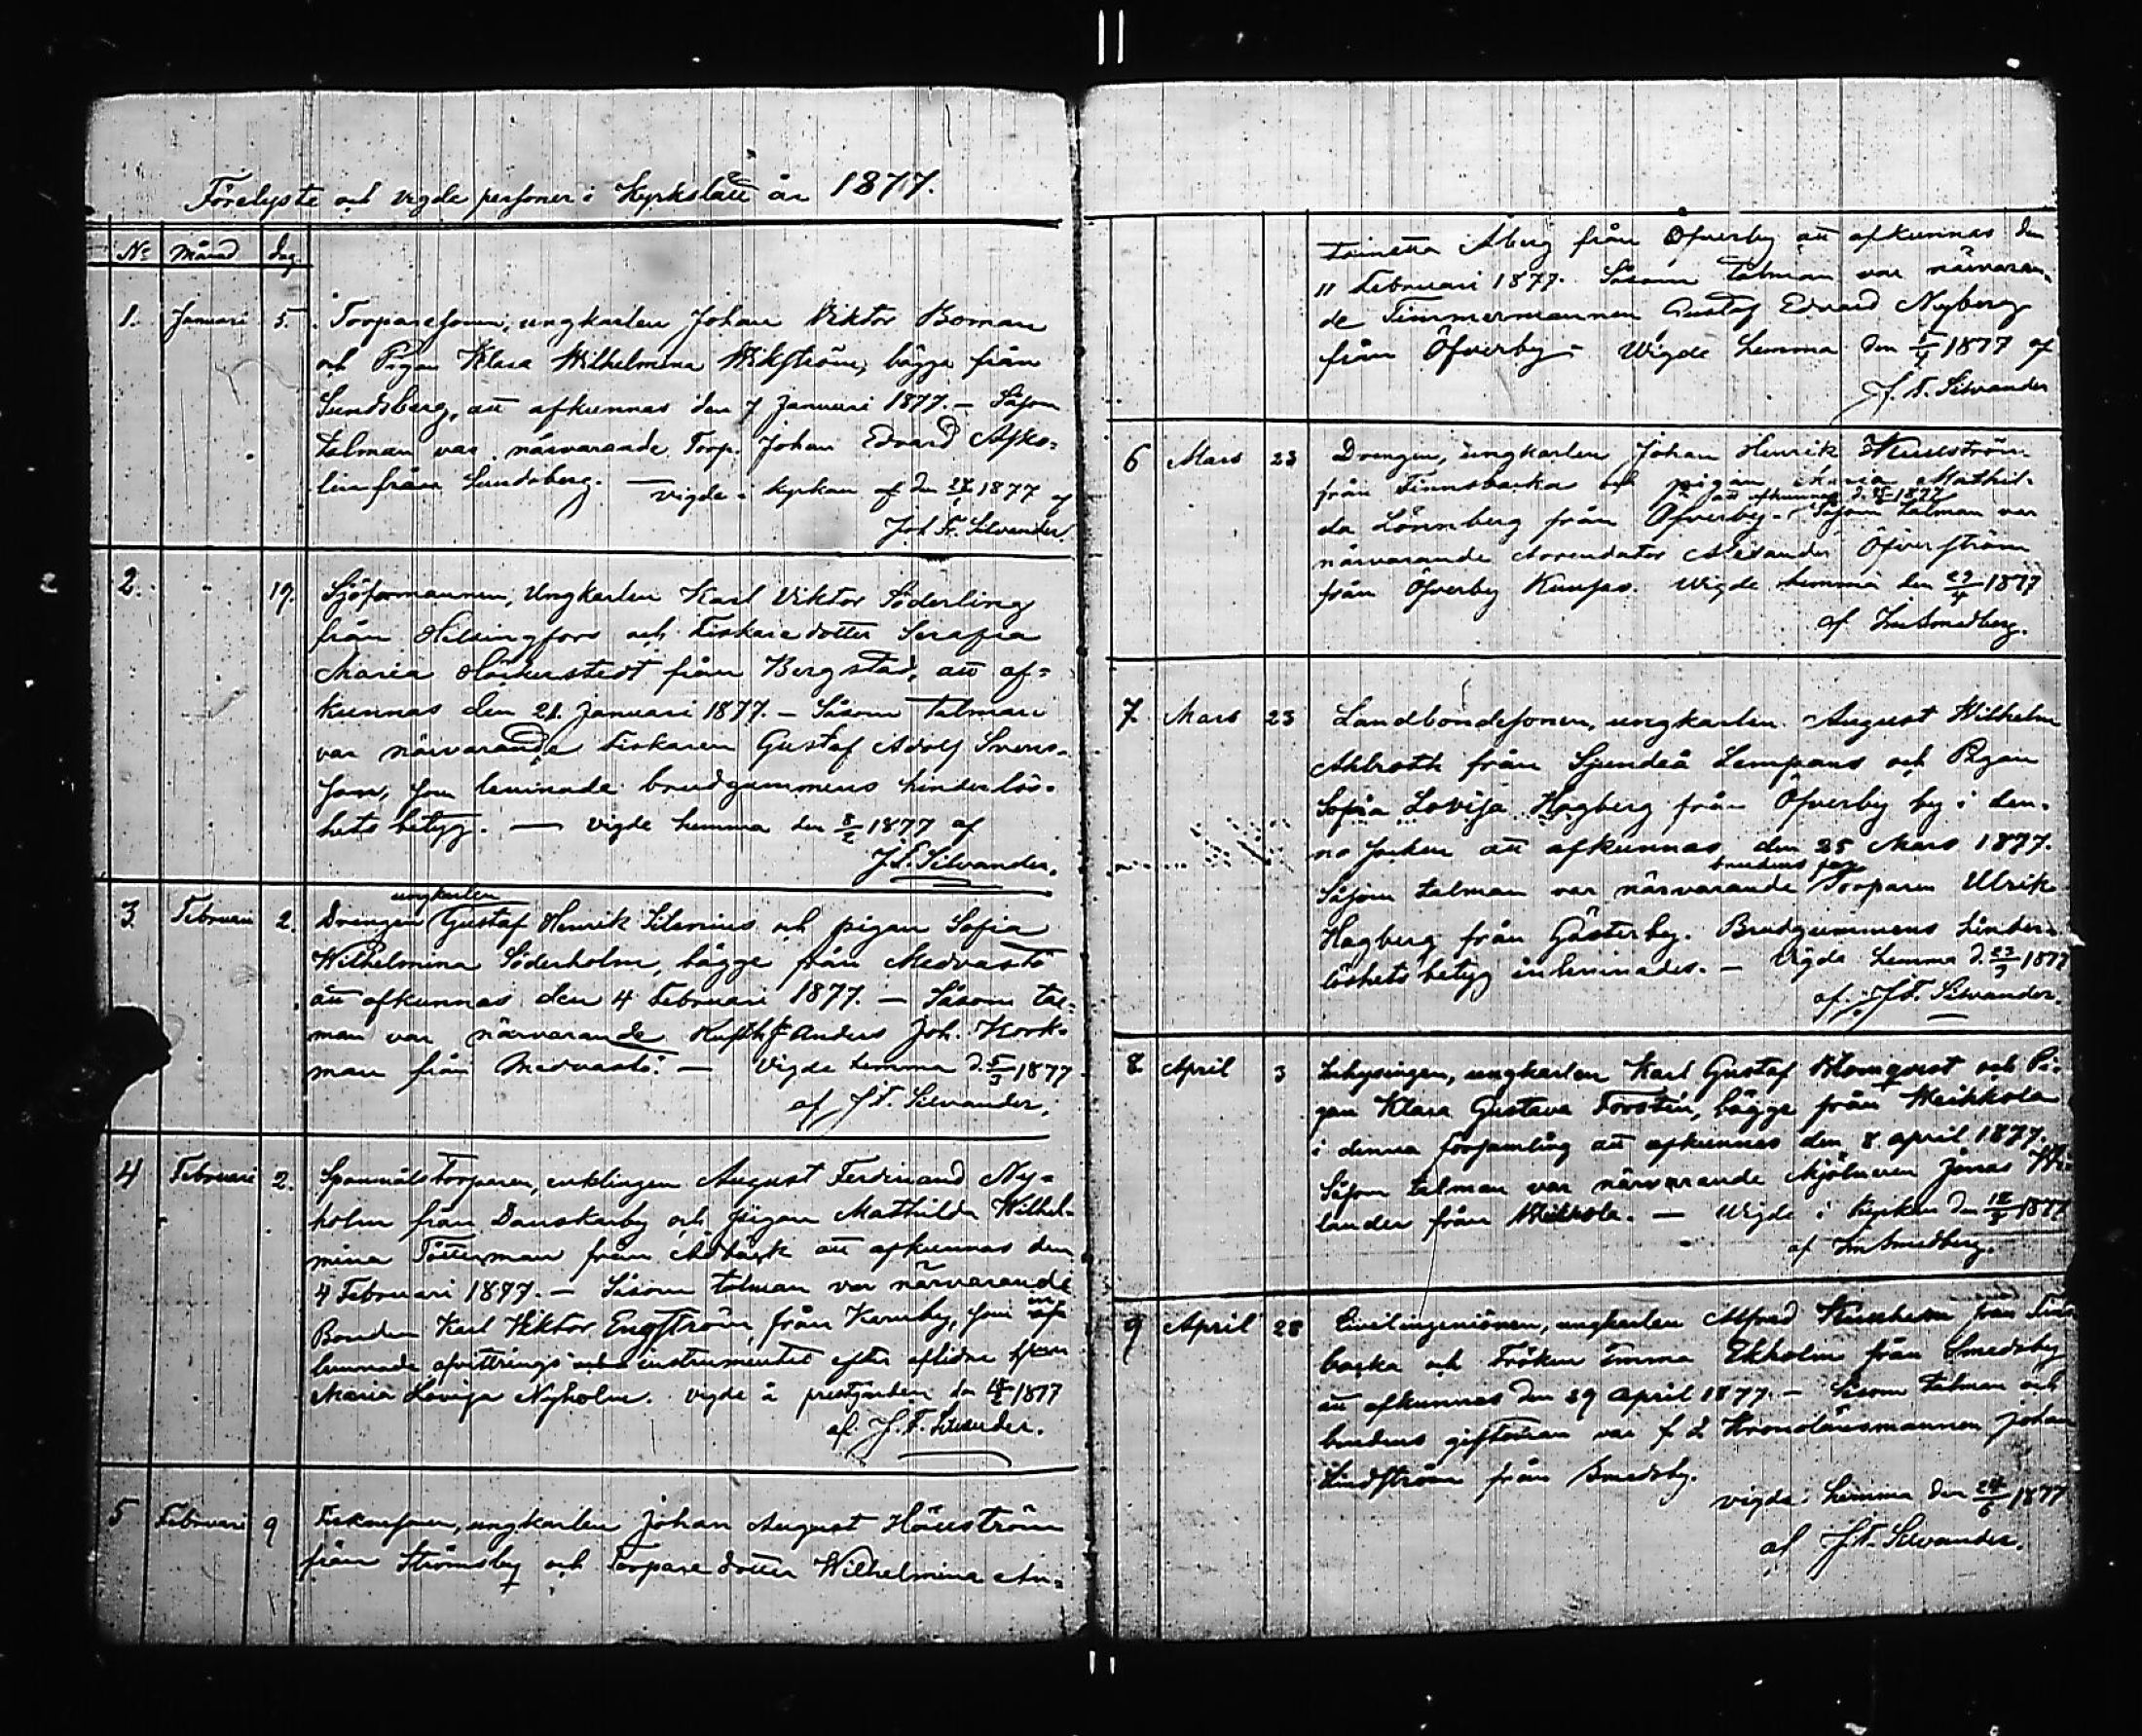 Förelyste och vigde personer i Kyrkslätt år 1877.
No Månad dag
1. Januari 5. Torparesonen, ungkarlen Johan Viktor Boman
och Pigan Klara Wilhelmina Wikström, bägge från
Sundsberg, att afkunnas den 7 Januari 1877. – Såsom
talman var närvarande Torp. Johan Edvard
från Sundsberg. – vigde i kyrkan af den 1877 af
Joh. Fr. Silvander.
2. " 19. Sjöförmannen, Ungkarlen Karl Viktor Söderling
från Helsingfors och Fiskaredotter Serafia
Maria från Bergstad, att af=
kunnas den 21. Januari 1877. – Såsom talman
var närvarande Fiskaren Gustaf Adolf Svens=
son, som brudgummens hinderlös=
hets betyg. — vigde hemma den 8/2 1877 af
J. F. Silvander.
ungkarlen
3. Februari 2. Drengen Gustaf Henrik och pigan Sofia
Wilhelmina Söderholm, bägge från Medvastö
att afkunnas den 4 Februari 1877. – Såsom tal=
man var närvarande Anders Joh. Kork=
man från Medvastö. – Vigde hemma d. 1877
af J. F. Silvander.
4 Februari 2. Spanmålstorparen, enklingen August Ferdinand Ny=
holm från Danskarby och pigan Mathilda Wilhel=
mina Töttermanfrån Åbäck att afkunnas den
4 Februari 1877. – Såsom talman var närvarande
Bonden Karl Viktor Engström, från Karuby, som
lemnade afvittrings instrumentet efter aflidne
Maria Lovisa Nyholm. vigde å prestgården den 1877
af J. F. Silvander.
5 Februari 9 ungkarlen Johan August
från Strömsby och Torparedotter Wilhelmina An=
Åberg från Öfverby att afkunnas den
11 Februari 1877. Såsom talman var närvaran=
de Timmermannen Gustaf Edvard Nyberg
från Öfverby – Wigde hemma den 1877 af
J. F. Silvander
6 Mars 23 Drengen, ungkarlen Johan Henrik
från Finnsbacka och pigan Maria Mathil=
att afkunnas d. 1877
da Lönnberg från Öfverby. – Såsom talman var
närvarande Arrendator Alexander Öfverström
från Öfverby Wigde hemma den 29/4 1877
af Smedberg.
7. Mars 23 Landbondesonen, ungkarlen August Wilhelm
Ahlroth från Sjundeå Lempans och Pigan
Sofia Lovisa Hagberg från Öfverby by i den=
na socken att afkunnas den 25 Mars 1877.
brudens far
Såsom talman var närvarande Torparen Ulrik
Hagberg från Gästerby. Brudgummens hinder=
löshets betyg inlemnades. – Vigde hemma d. 1877
af J. F. Silvander.
8 April 3 Inhysingen, ungkarlen Karl Gustaf Blomqvist och Pi=
gan Klara Gustava Forstén, bägge från Weikkola
i denna församling att afkunnas den 8. april 1877.
Såsom talman var närvarande Mjölnaren Jonas
lander från Weikkola. – Wigde i kyrkan den 1877
af Smedberg.
9 April 28 Civilingeniören, ungkarlen Alfred från
backa och Fröken Emma Ekholm från Smedsby
att afkunnas den 29 april 1877. – Såsom talman och
brudens giftoman var f. d. Kronolänsmannen Johan
Lindström från Smedsby.
vigde: hemma den 1877
af J. F. Silvander.